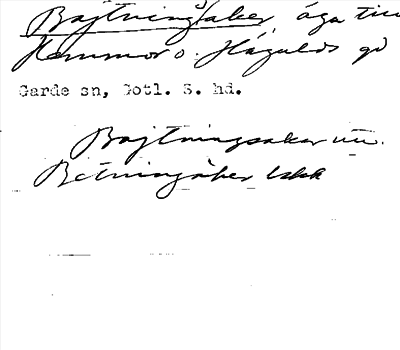 Bajtningsåker, äga till
Hemmor o. Hägulds gd
Garde sn, Gotl. S. hd.
Bajtningsakar un.
Betningsåker Lskk